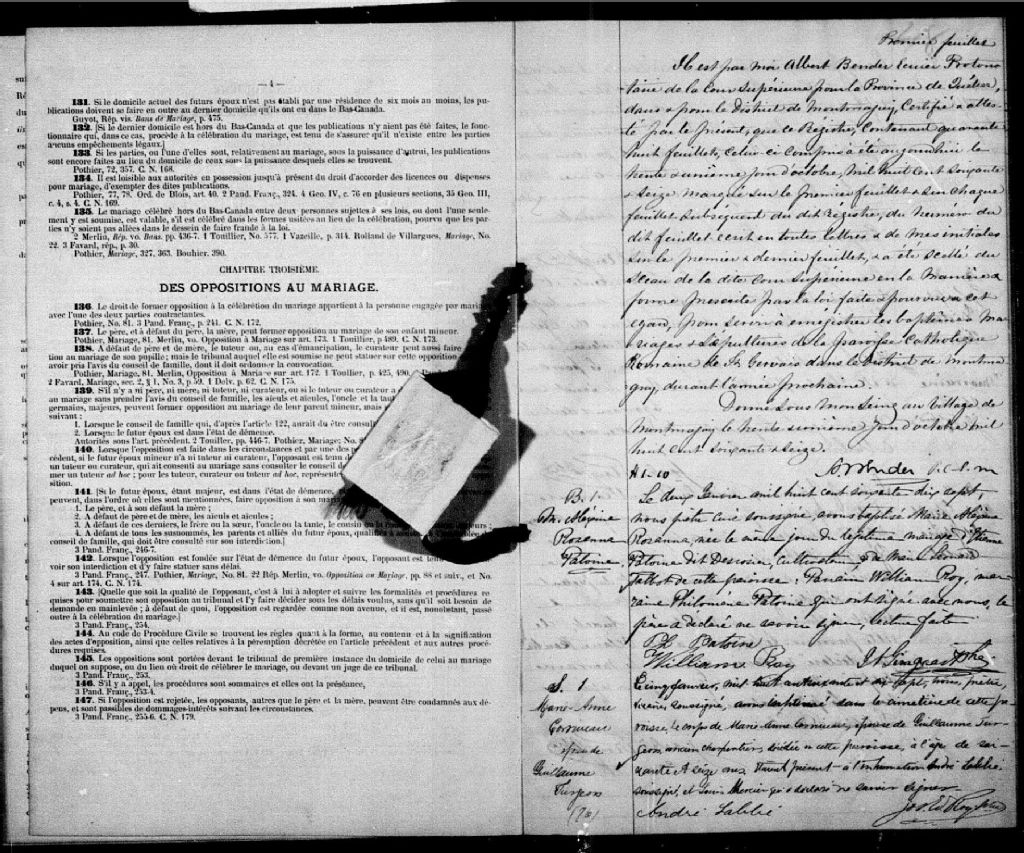 — 4 —
131. Si le domicile actuel des futurs époux n'est pas établi par une résidence de six mois au moins, les pu-
blications doivent se faire en outre au dernier domicile qu'ils ont eu dans le Bas-Canada.
Guyot, Rép. vis. Bans de Mariage, p. 475.
132. [Si le dernier domicile est hors du Bas-Canada et que les publications n'y aient pas été faites, le fonc-
tionnaire qui, dans ce cas, procède à la célébration du mariage, est tenu de s'assurer qu'il n'existe entre les parties
aucuns empêchements légaux.]
133. Si les parties, ou l'une d'elles sont, relativement au mariage, sous la puissance d'autrui, les publications
sont encore faites au lieu du domicile de ceux sous la puissance desquels elles se trouvent.
Pothier, 72, 357. C. N. 168.
134. Il est loisible aux autorités en possession jusqu'à présent du droit d'accorder des licences ou dispenses
pour mariage, d'exempter des dites publications.
Pothier, 77, 78. Ord. de Blois, art. 40. 2 Pand. Franç., 324. 4 Geo. IV, c. 76 en plusieurs sections, 35 Geo. III,
c. 4, s. 4. C. N. 169.
135. Le mariage célébré hors du Bas-Canada entre deux personnes sujettes à ses lois, ou dont l'une seule-
ment y est soumise, est valable, s'il est célébré dans les formes usitées au lieu de la célébration, pourvu que les par-
ties n'y soient pas allées dans le dessein de faire fraude à la loi.
2 Merlin, Rép. vo. Bans. pp. 436-7. 1 Touillier, No. 577. 1 Vazeille, p. 314. Rolland de Villargues, Mariage, No.
22. 3 Favard, rép., p. 30.
Pothier, Mariage, 327, 363. Bouhier. 390.
CHAPITRE TROISIÈME.
DES OPPOSITIONS AU MARIAGE.
136. Le droit de former opposition à la célébration du mariage appartient à la personne engagée par mari
avec l'une des deux parties contractantes.
Pothier, No. 81. 3 Pand. Franç., p. 241. C. N. 172.
137. Le père, et à défaut du père, la mère, peut former opposition au mariage de son enfant mineur.
Pothier, Mariage, 81. Merlin, vo. Opposition à Mariage sur art. 173. 1 Touillier, p. 489. C. N. 173.
138. A défaut de père et de mère, le tuteur ou, au cas d'émancipation, le curateur peut aussi faire
tion au mariage de son pupille; mais le tribunal auquel elle est soumise ne peut statuer sur cette opposition
avoir pris l'avis du conseil de famille, dont il doit ordonner la convocation.
Pothier, Mariage, 81. Merlin, Opposition à Mariage sur art. 172. 1 Touillier, p. 425, 490.
2 Favard, Mariage, sec. 2, § 1, No. 3, p. 59. 1 Delv. p. 62. C. N. 175.
139. S'il n'y a ni père, ni mère, ni tuteur, ni curateur, ou si le tuteur ou curateur a d
au mariage sans prendre l'avis du conseil de famille, les aïeuls et aïeules, l'oncle et la tan
germains, majeurs, peuvent former opposition au mariage de leur parent mineur, mais
suivant :
1. Lorsque le conseil de famille qui, d'après l'article 122, aurait du être consult
2. Lorsque le futur époux est dans l'état de démence.
Autorités sous l'art. précédent. 2 Touiller, pp. 446-7. Pothier, Mariage; No. 8
140. Lorsque l'opposition est faite dans les circonstances et par une des p
cédent, si le futur époux mineur n'a ni tuteur ni curateur, l'opposant est t
un tuteur ou curateur, qui ait consenti au mariage sans consulter le conseil d
mer un tuteur ad hoc ; pour les tuteur, curateur ou tuteur ad hoc, représent
sition.
141. [Si le futur époux, étant majeur, est dans l'état de démence,
peuvent, dans l'ordre où elles sont mentionnées, faire opposition à son mar
1. Le père, et à son défaut la mère ;
2. A défaut de père et de mère, les aïeuls et aïeules ;
3. A défaut de ces derniers, le frère ou la sœur, l'oncle ou la tante, le cousin
4. A défaut de tous les susnommés, les parents et alliés du futur époux, qualifiés
conseil de famille, qui doit être consulté sur son interdiction.]
3 Pand. Franç., 246-7.
142. Lorsque l'opposition est fondée sur l'état de démence du futur époux, l'opposant est ten
voir son interdiction et d'y faire statuer sans délai.
3 Pand. Franç., 247. Pothier, Mariage, No. 81. 22 Rép. Merlin, vo. Opposition au Mariage, pp. 88 et suiv., et No.
4 sur art. 174. C. N. 174.
143. [Quelle que soit la qualité de l'opposant, c'est à lui à adopter et suivre les formalités et procédures re-
quises pour soumettre son opposition au tribunal et l'y faire décider sous les délais voulus, sans qu'il soit besoin de
demande en mainlevée ; à défaut de quoi, l'opposition est regardée comme non avenue, et il est, nonobstant, passé
outre à la célébration du mariage.]
3 Pand. Franç., 254.
144. Au code de Procédure Civile se trouvent les règles quant à la forme, au contenu et à la signification
des actes d'opposition, ainsi que celles relatives à la péremption décrétée en l'article précédent et aux autres procé-
dures requises.
145. Les oppositions sont portées devant le tribunal de première instance du domicile de celui au mariage
duquel on suppose, ou du lieu où droit de célébrer le mariage, ou devant un juge de ce tribunal.
3 Pand. Franç., 253.
146. S'il y a appel, les procédures sont sommaires et elles ont la préséance,
3 Pand. Franç., 253-4.
147. Si l'opposition est rejetée, les opposants, autres que le père et la mère, peuvent être condamnés aux dé-
pens, et sont passibles de dommages-intérêts suivant les circonstances.
3 Pand. Franç., 255-6. C. N. 179.
Premier feuillet
Il est par moi Albert Bender écuier Protono
taire de la Cour Supérieure pour la Province de Québec,
dans & pour le District de Montmagny, Certifié & attes
té par le présent, que ce Régistre, Contenant quarante
huit feuillets, celui ci compris a été aujourd'hui le
trente & unième jour d'octobre, Mil huit cent soixante
& seize marqué sur le premier feuillet & sur chaque
feuillet subséquent du dit Registre, du numéro du
dit feuillet écrit en toutes lettres & de mes initiales
sur le premier & dernier feuillet, & a été scellé du
Sceau de la dite Cour Supérieure en la manière &
forme prescrite par la loi faite & pourvue à cet
égard, pour servir à enregistrer les baptêmes ma
riages & sépultures de la paroisse Catholique
Romaine de St Gervais dans le District de Montma
gny, durant l'année prochaine.
Donné sous mon seing au Village de
Montmagny le trente & unième jour d'octobre mil
huit cent soixante & seize.
A Bender P. C. S. M
B. 1
M. Aléxine
Rosanna
Patoine
Le deux Janvier mil huit cent soixante dix sept,
nous prêtre curé soussigné, avons baptisé Marie Aléxine
Rosanna, née le même jour du légitime mariage d'Étienne
Patoine dit Desrosier, cultivateur & de Marie
Talbot de cette paroisse : Parrain William Roy, mar
raine Philomène Patoine qui ont signé avec nous, le
père a déclaré ne savoir signer, lecture faite
Ph Patoine
William Roy
S. 1
Marie-Anne
Corriveau
épouse de
Guillaume
Turgeon
Le cinq Janvier, mil huit cent soixante et dix sept, nous, prêtre,
vicaire, soussigné, avons enterré dans le cimetière de cette pa-
roisse, le corps de Marie-Anne Corriveau, épouse de Guillaume Tur-
geon, ancien charpentier, décédée en cette paroisse, à l'âge de soi-
xante & seize ans. Étaient présent à l'inhumation André Labbé
soussigné, et Louis Mercier qui a déclaré ne savoir signer
André Labbé
Jos. Ed. Roy Ptre